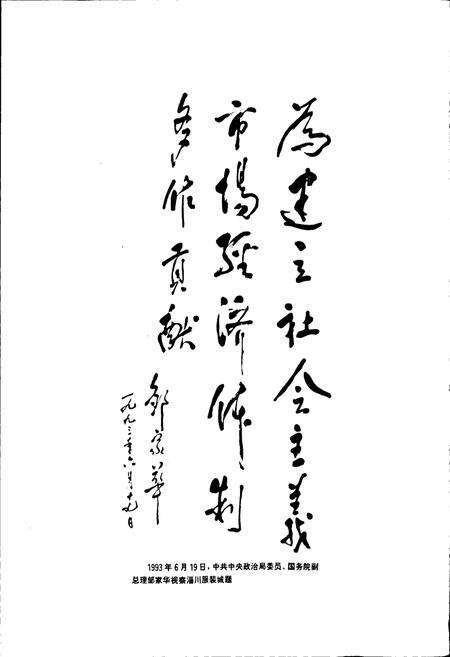 為建立社会主義
市場經济体制
多作貢献
邹家華
一九九三年六月十九日
1993年6月19日，中共中央政治局委员、国务院副
总理邹家华视察淄川服装城题